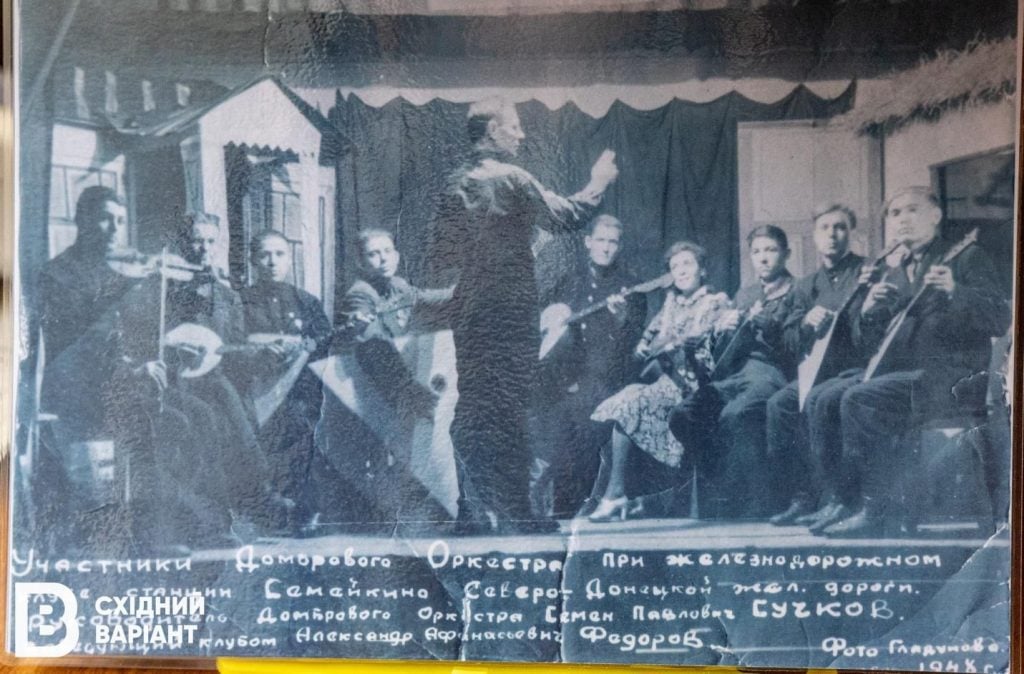 Участники Домрового Оркестра при железнодорожном
станции Семейкино Северо-Донецкой жел. дороги.
Домрового Оркестра Семен Павлович СУЧКОВ.
клубом Александр Афанасьевич Федоров.
Фото Гладунова.
194 г.
СХІДНИЙ
ВАРІАНТ